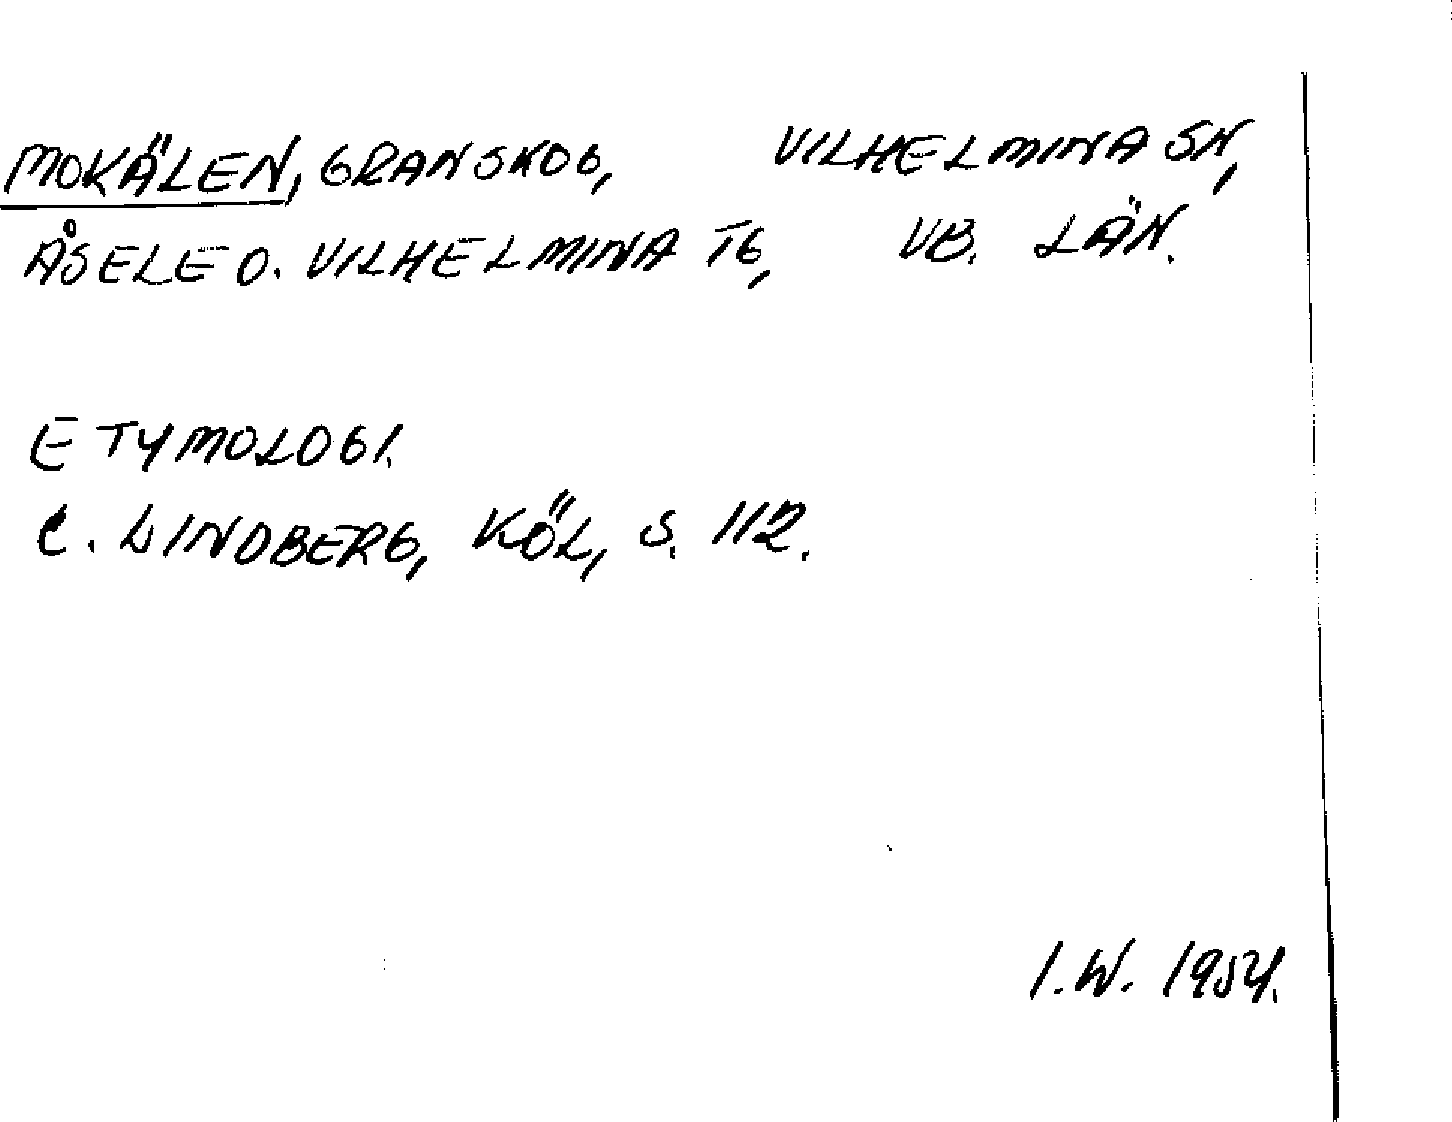 MOKÄLEN, GRANSKOG, VILHELMINA SN,
ÅSELE O. VILHELMINA TG, VB. LÄN.
ETYMOLOGI.
C. LINDBERG, KÖL, S. 112.
I.W. 1954.